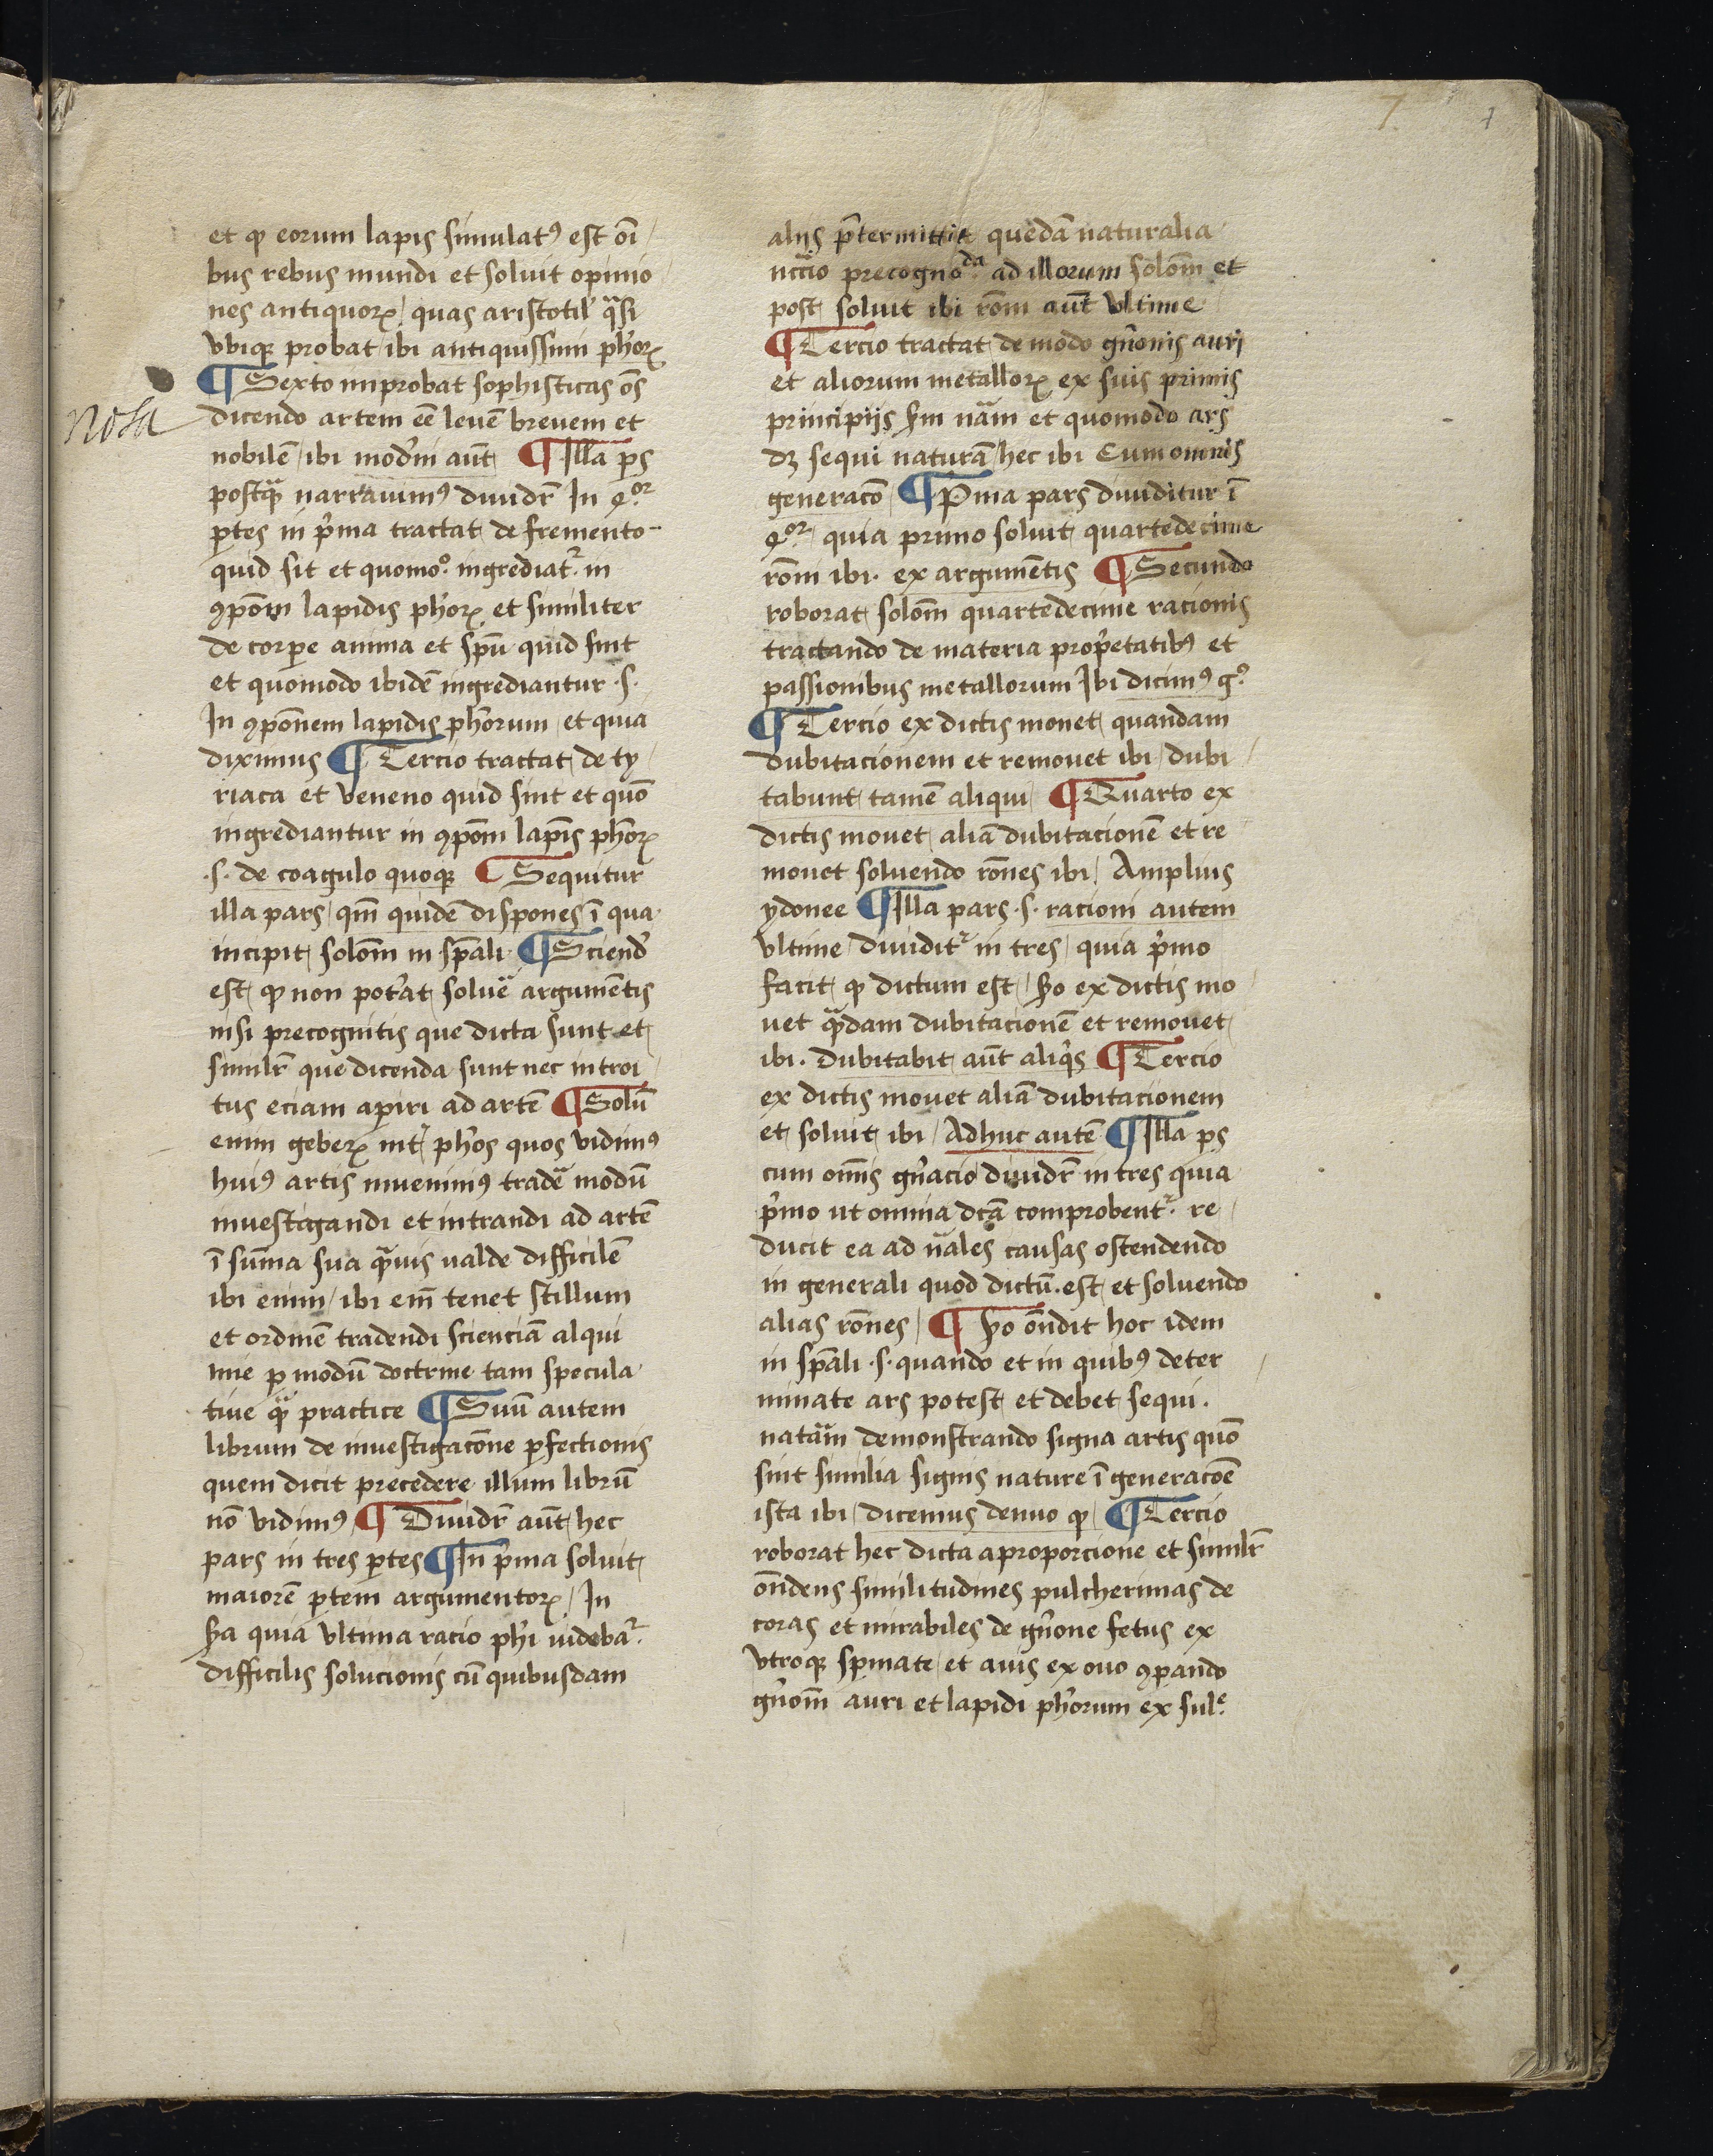 7 7
et qꝫ eorum lapis simulatꝰ est oı̄
bus rebus mundi et soluit opinio
nes antiquoꝝ / quas aristotil' qͣsi
vbiqꝫ probat / ibi antiquissimi ph'oꝝ
¶ Sexto improbat sophisticas oēs
nota
dicendo artem eē leuē breuem et
nobilē / ibi mod'ni aūt ¶ Illa p̄s
postqͣꝫ narrauimꝰ diuidr̄ In 4ᵒʳ
ꝑtes in p'ma tractat de fremento
quid sit et quomoᵒ ingrediatᷣ in
ꝯpōm lapidis ph'oꝝ et similiter
de corꝑe anima et spū quid sint
et quomodo ibidē ingrediantur .s.
In ꝯpōnem lapidis ph'orum / et quia
diximus ¶ Tercio tractat de ty
riaca et veneno quid sint et quō
ingrediantur in ꝯpōm lapīs ph'oꝝ
.s. de coagulo quoqꝫ ¶ Sequitur
illa pars / qm̄ quidē dispones ī qua
incipit solōm in sp̄ali ¶ Sciend'
est qꝫ non pot'at soluē argumētis
nisi precognitis que dicta sunt et
similr̄ que dicenda sunt nec introi
tus eciam aꝑiri ad artē ¶ Solū
enim geberꝝ int' ph'os quos vidimꝰ
huiꝰ artis inuenimꝰ tradē modū
inuestigandi et intrandi ad artē
ī sūma sua qͣuis ualde difficilē
ibi enim / ibi em̄ tenet stillum
et ordinē tradendi scienciā alqui
mie ꝑ modū doctrine tam specula
tiue qͣꝫ practice ¶ Suū autem
librum de inuestigacōne ꝑfectionis
quem dicit precedere illum librū
nō vidimꝰ ¶ Diuidr̄ aūt hec
pars in tres ꝑtes ¶ In p'ma soluit
maiorē ꝑtem argumentoꝝ / In
ßa quia vltima racio ph'i uidebaᷣ
difficilis solucionis cū quibusdam
alijs p̄termittit quedā naturalia
nccīo precognoᵈᵃ ad illorum solōm et
post soluit ibi rōm aūt vltime
¶ Tercio tractat de modo gn'onis auri
et aliorum metalloꝝ ex suis primis
principijs ßm nām et quomodo ars
dꝫ sequi naturā / hec ibi Cum omnis
generacō ¶ P'ma pars diuiditur ī
4ᵒʳ / quia primo soluit quartedecime
rōm ibi . ex argumētis ¶ Secundo
roborat solōm quartedecime racionis
tractando de materia prop'etatibꝰ et
passionibus metallorum Ibi dicimꝰ gᵒ
¶ Tercio ex dictis monet quandam
dubitacionem et remouet ibi / dubi
tabunt tamē aliqui ¶ Quarto ex
dictis mouet aliā dubitacionē et re
mouet soluendo rōnes ibi / Amplius
ydonee ¶ Illa pars .s. racioni autem
vltime / diuiditᷣ in tres / quia p'mo
facit qꝫ dictum est / ßo ex dictis mo
uet qͣdam dubitacionē et remouet
ibi . dubitabit aūt aliq's ¶ Tercio
ex dictis mouet aliā dubitacionem
et soluit ibi / Adhuc autē ¶ Illa p̄s
cum om̄is gn'acio diuidr̄ in tres quia
p'mo ut omnia dc̄a comprobentᷣ re
ducit ea ad nāles causas ostendendo
in generali quod dictū . est et soluendo
alias rōnes / ¶ ßo on̄dit hoc idem
in sp̄ali .s. quando et in quibꝰ deter
minate ars potest et debet sequi .
natām demonstrando signa artis quō
sint similia signis nature ī generacōē
ista ibi / dicemus denuo qꝫ ¶ Tercio
roborat hec dicta a proporcione et similr̄
on̄dens similitudines pulcherimas de
coras et mirabiles de gn'one fetus ex
vtroqꝫ spmate / et auis ex ouo ꝯꝑando
gn'om̄ auri et lapidi ph'orum ex sulᵉ